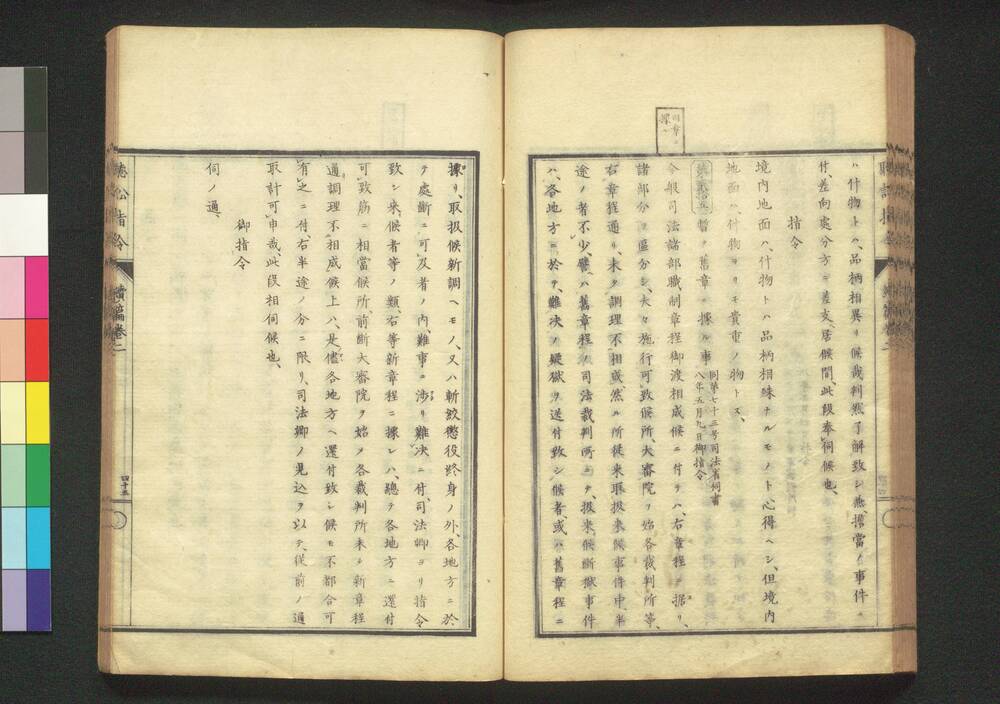 ハ什物トハ品柄相異リ候裁判然了解致シ兼擔當ノ事件ニ
付、差向處分方ニ差支居候間、此段奉伺候也、
指令
境内地面ハ、什物トハ品柄相殊ナルモノト心得ヘシ、但境内
地面ハ、什物ヨリモ貴重ノ物トス、
暫ク舊章ニ據ル事
同第七十三号司法省伺書
八年五月九日御指令
今般司法諸部職制章程御渡相成候ニ付テハ、右章程ニ据リ、
諸部分ヲ區分シ、夫々施行可致候所、大審院ヲ始各裁判所等、
右章程通リ、未タ調理不相成、然ル所従来取扱来候事件中、半
途ノ者不少、譬ハ舊章程ノ司法裁判所ニテ、扱来候斷獄事件
ハ、各地方ニ於テ、難決ノ疑獄ヲ送付致シ候者或ハ舊章程ニ
據リ、取扱候新調ヘモノ、又ハ斬絞懲役終身ノ外、各地方ニ於
テ處斷ニ可及者ノ内、難事ニ渉リ難決ニ付、司法卿ヨリ指令
致シ来候者等ノ類、右等新章程ニ據レハ、總テ各地方ニ還付
可致筋ニ相當候所、前斷大審院ヲ始メ各裁判所未タ新章程
通調理不相成候上ハ、是儘各地方ヘ還付致シ候モ不都合可
有之ニ付、右半途ノ分ニ限リ、司法卿ノ見込ヲ以テ、従前ノ通
取計可申哉、此段相伺候也、
御指令
伺ノ通、
聴訟指令 續篇巻二
四十五